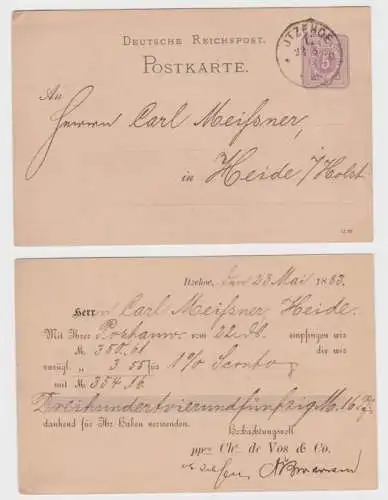 DEUTSCHE REICHSPOST.
POSTKARTE.
ITZEHOE
5
An
Herrn Carl Meißner,
in Heide i/Holst
Itzehoe, den 23 Mai 1883.
Herrn Carl Meißner, Heide.
Mit Ihrer Postanw. vom 22. ds. empfingen wir
M. 350.61 die wir
zuzügl. „ 3.55 für 1% Sconto
mit M. 354.16
Dreihundertvierundfünfzig M. 16 Pfg
dankend für Ihr Haben verwenden.
Hochachtungsvoll
ppa. Chs. de Vos & Co.